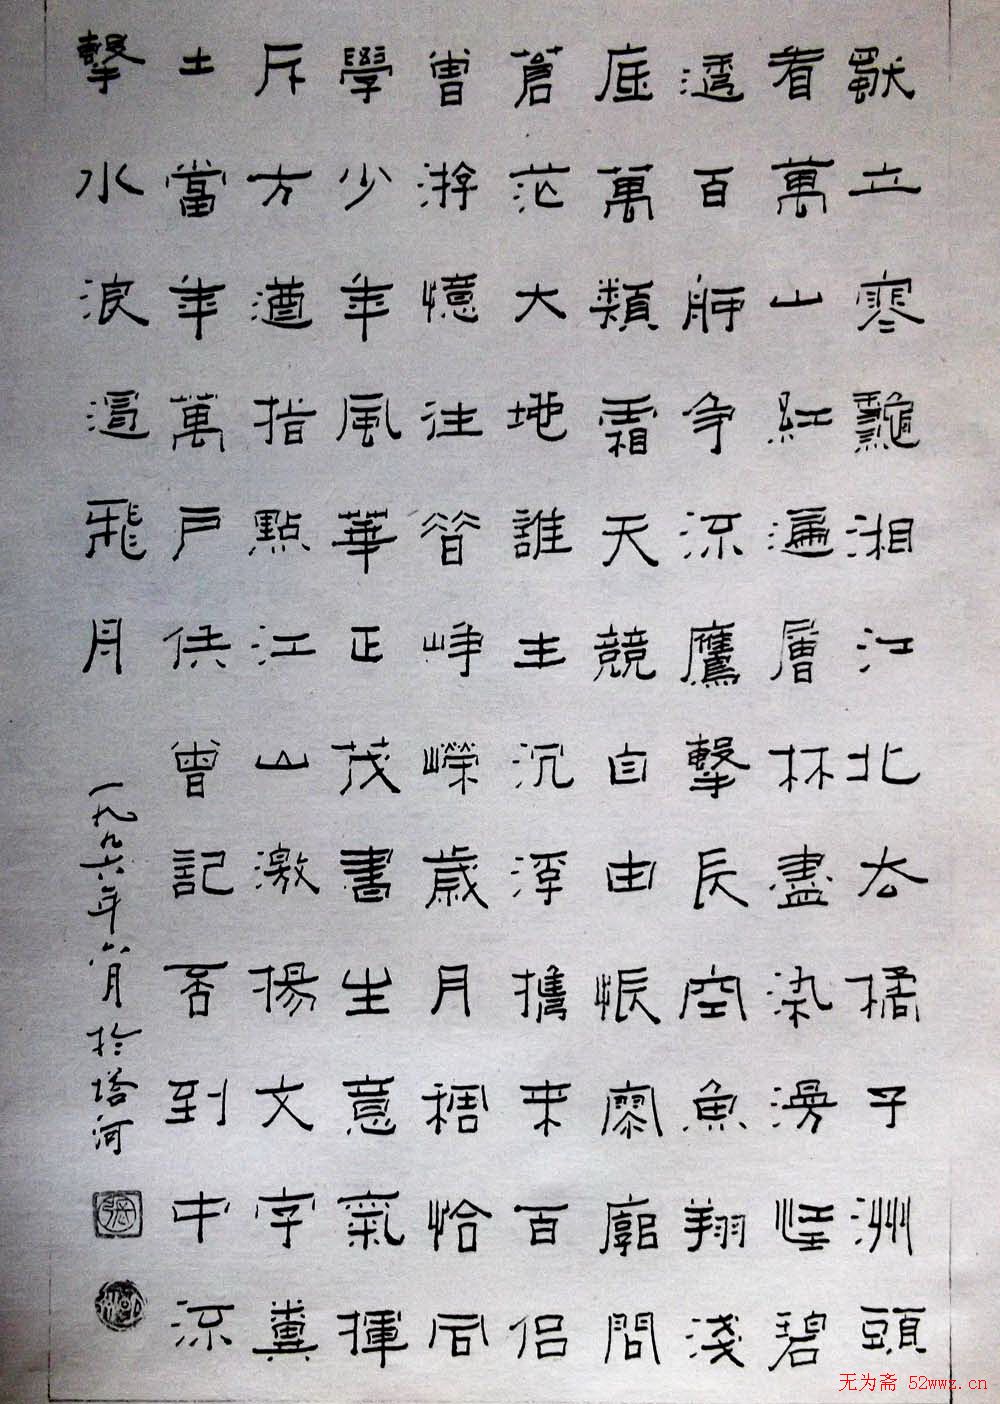 獨立寒龝湘江北去橘子洲頭
看萬山紅遍層林盡染漫江碧
透百舸争流鷹擊長空魚翔淺
底萬類霜天競自由悵寥廓問
蒼茫大地誰主沉浮攜來百侣
曾游憶往昔崢嶸歲月稠恰同
學少年風華正茂書生意氣揮
斥方遒指點江山激揚文字糞
土當年萬户侯曾記否到中流
擊水浪遏飛舟
一九九六年六月於塔河
无为斋 52wwz.cn